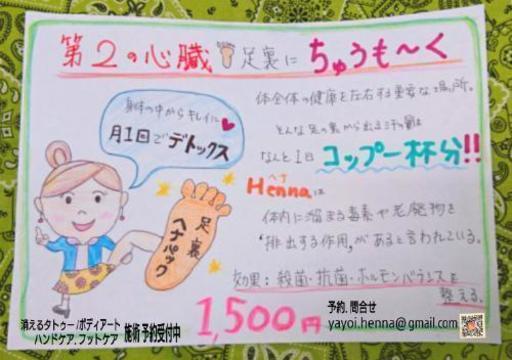 第2の心臓 足裏に ちゅうも〜く
身体の中からキレイに
月1回でデトックス
体全体の健康を左右する重要な場所。
そんな足の裏から出る汗の量は
なんと1日 コップ一杯分!!
ヘナ
Hennaは
体内に溜まる毒素や老廃物を
"排出する作用"があると言われている。
足裏
ヘナパック
効果:殺菌・抗菌・ホルモンバランスを
整える。
1,500円
消えるタトゥー/ボディアート
ハンドケア.フットケア
施術 予約受付中
予約.問合せ
yayoi.henna@gmail.com